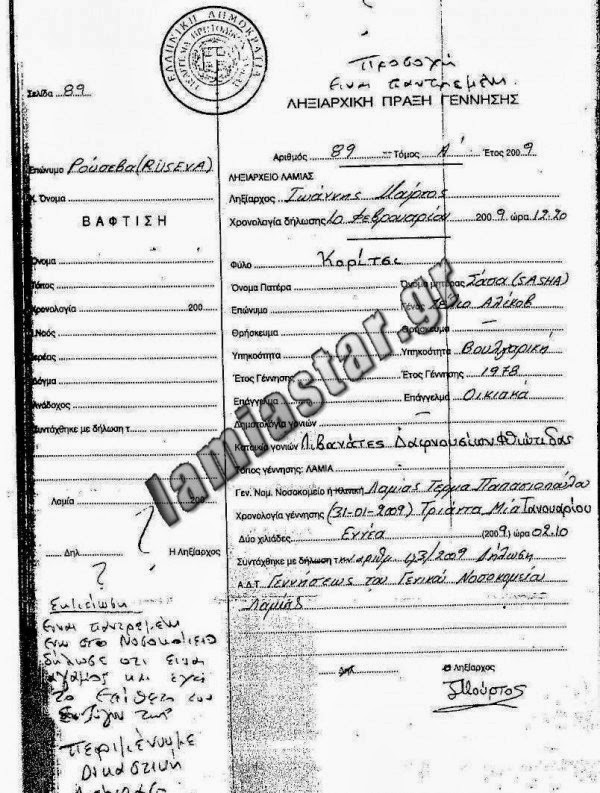 ΕΛΛΗΝΙΚΗ ΔΗΜΟΚΡΑΤΙΑ
Προσοχή
είναι παντρεμένη.
ΛΗΞΙΑΡΧΙΚΗ ΠΡΑΞΗ ΓΕΝΝΗΣΗΣ
Σελίδα 89
Αριθμός 89 Τόμος Α' Έτος 2009
Επώνυμο Ρούσεβα (RUSEVA)
Κ. Όνομα
ΒΑΦΤΙΣΗ
Όνομα
Τόπος
Χρονολογία 200
Ι.Ναός
Ιερέας
Δόγμα
Ανάδοχος
Συντάχθηκε με δήλωση τ
Λαμία 200
Δηλ Η Ληξίαρχος
?
?
Σημείωση
Είναι παντρεμένη
ενώ στο Νοσοκομείο
δήλωσε ότι είναι
άγαμος και έχει
το επίθετο του
συζύγου της
περιμένουμε
δικαστική
ΛΗΞΙΑΡΧΕΙΟ ΛΑΜΙΑΣ
Ληξίαρχος Ιωάννης Μούρτος
Χρονολογία δήλωσης 10 Φεβρουαρίου 2009 ώρα 12.20
Φύλο Κορίτσι
Όνομα Πατέρα Όνομα μητέρας Σάσα (SASHA)
Επώνυμο Γένος Αλέκοβ
Θρήσκευμα Θρήσκευμα —
Υπηκοότητα Υπηκοότητα Βουλγαρική
Έτος Γέννησης Έτος Γέννησης 1978
Επάγγελμα Επάγγελμα Οικιακά
Δημοτολογία γονιών
Κατοικία γονιών Λιβανάτες Δαφνουσίων Φθιώτιδας
Τόπος γέννησης: ΛΑΜΙΑ
Γεν. Νομ. Νοσοκομείο ή Κλινική Λαμίας Τέρμα Παπασιοπούλου
Χρονολογία γέννησης (31-01-2009) Τριάντα Μία Ιανουαρίου
Δύο χιλιάδες Εννέα (2009) ώρα 02.10
Συντάχθηκε με δήλωση την αριθμ. 43/2009 Δήλωση
Α.Δ.Τ. Γεννήσεως του Γενικού Νοσοκομείου
Λαμίας
Δηλ Ο Ληξίαρχος
Μούρτος
lamiastar.gr